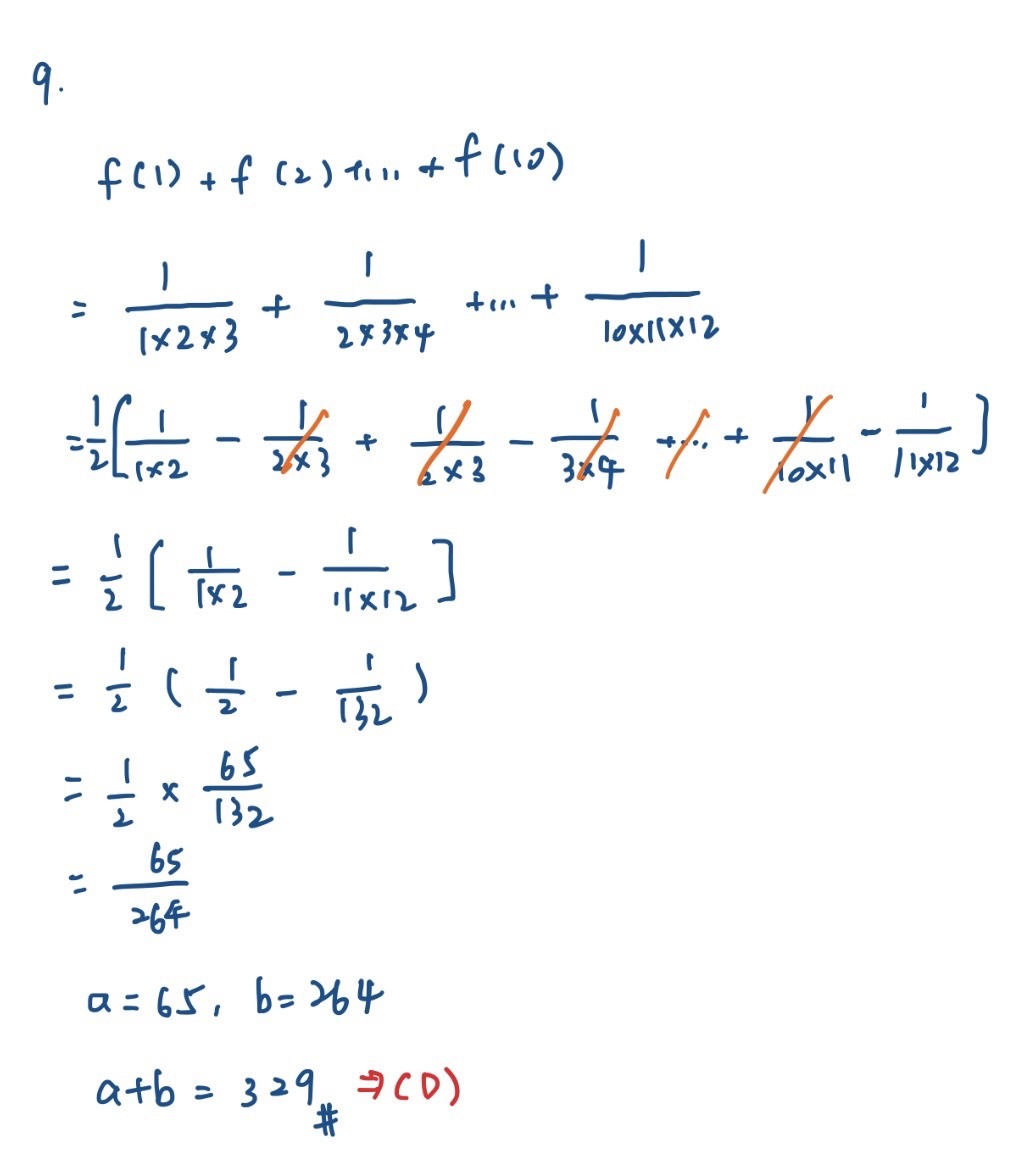 9.
f(1) + f(2) + ... + f(10)
= 1/(1×2×3) + 1/(2×3×4) + ... + 1/(10×11×12)
= 1/2 [ 1/(1×2) - 1/(2×3) + 1/(2×3) - 1/(3×4) + ... + 1/(10×11) - 1/(11×12) ]
= 1/2 [ 1/(1×2) - 1/(11×12) ]
= 1/2 ( 1/2 - 1/132 )
= 1/2 × 65/132
= 65/264
a = 65, b = 264
a+b = 329 # ⇒ (D)